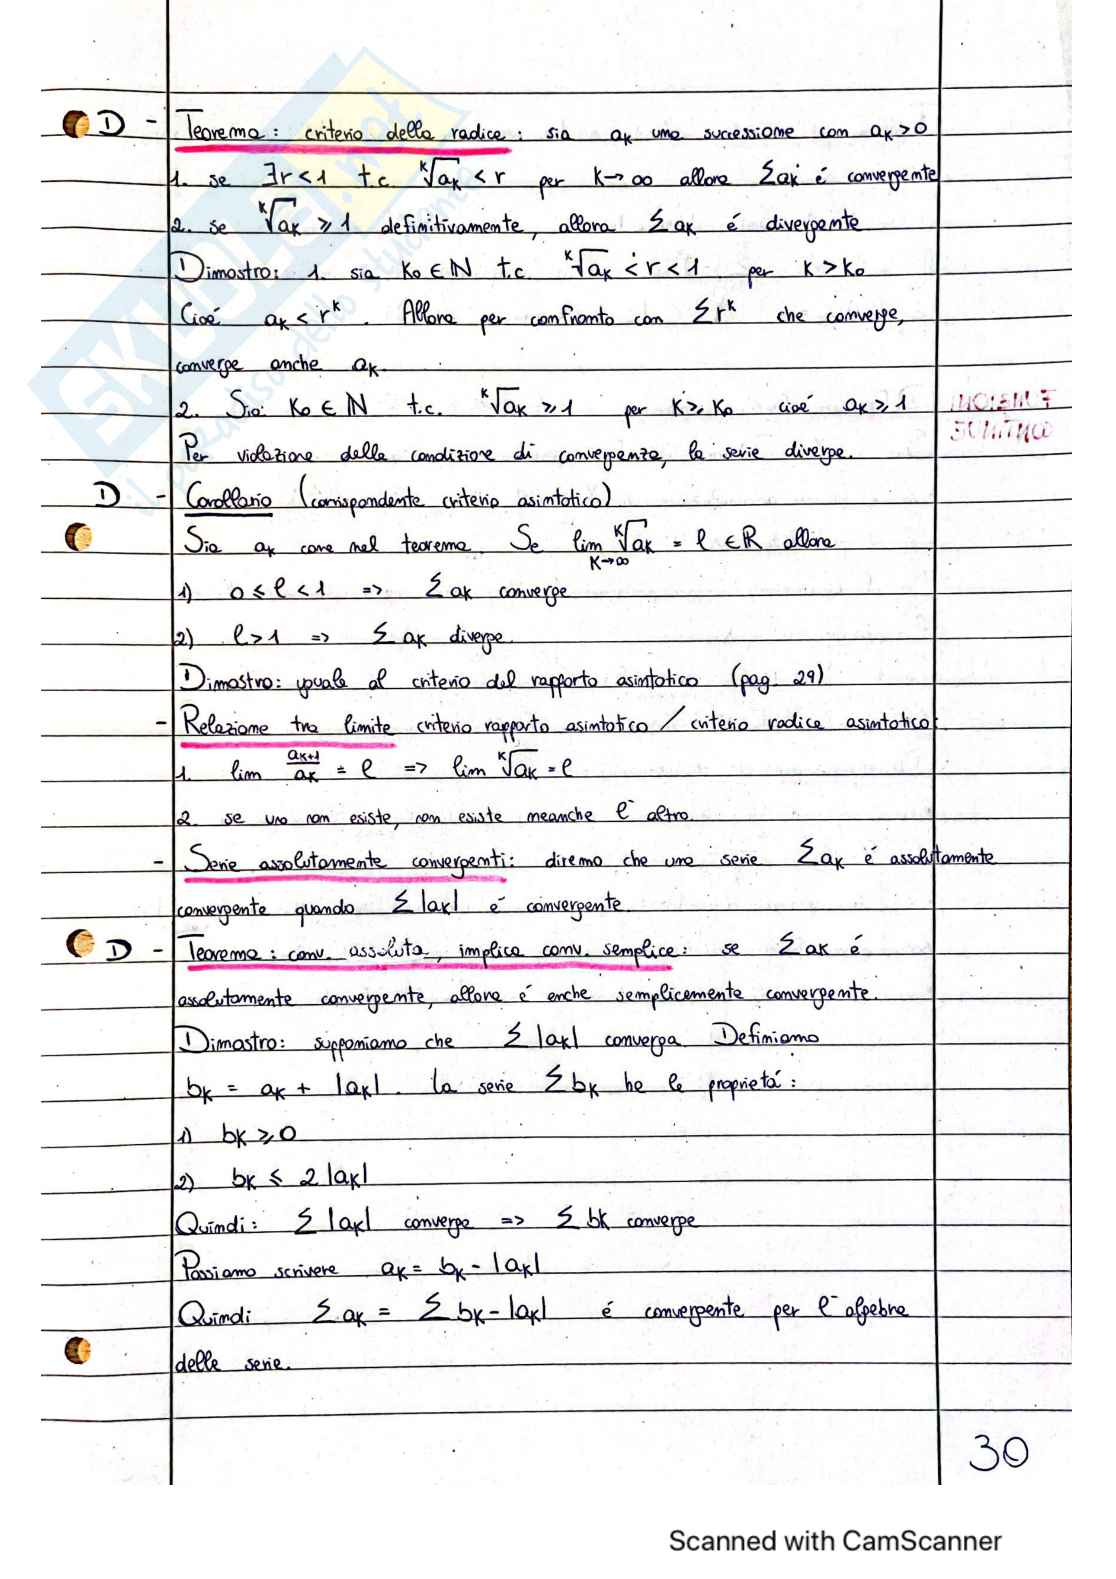 D - Teorema: criterio della radice: sia aₖ una successione con aₖ > 0
1. se ∃r < 1 t.c. ᵏ√aₖ < r per K→∞ allora Σaₖ é convergente
2. se ᵏ√aₖ ⩾ 1 definitivamente, allora Σ aₖ é divergente
Dimostro: 1. sia K₀ ∈ ℕ t.c. ᵏ√aₖ < r < 1 per K > K₀
Cioé aₖ < rᵏ. Allora per confronto con Σrᵏ che converge,
converge anche aₖ.
2. Sia K₀ ∈ ℕ t.c. ᵏ√aₖ ⩾ 1 per K ⩾ K₀ cioé aₖ ⩾ 1
Per violazione della condizione di convergenza, la serie diverge.
D - Corollario (corrispondente criterio asintotico)
Sia aₖ come nel teorema. Se lim ᵏ√aₖ = ℓ ∈ ℝ allora
K→∞
1) 0 ⩽ ℓ < 1 => Σ aₖ converge
2) ℓ > 1 => Σ aₖ diverge.
Dimostro: uguale al criterio del rapporto asintotico (pag. 29)
- Relazione tra limite criterio rapporto asintotico / criterio radice asintotico
1. lim aₖ₊₁/aₖ = ℓ => lim ᵏ√aₖ = ℓ
2. se uno non esiste, non esiste neanche l'altro.
- Serie assolutamente convergenti: diremo che una serie Σaₖ é assolutamente
convergente quando Σ|aₖ| é convergente.
D - Teorema: conv. assoluta, implica conv. semplice: se Σaₖ é
assolutamente convergente, allora é anche semplicemente convergente.
Dimostro: supponiamo che Σ|aₖ| converga. Definiamo
bₖ = aₖ + |aₖ|. La serie Σbₖ ha le proprietá:
1) bₖ ⩾ 0
2) bₖ ⩽ 2|aₖ|
Quindi: Σ|aₖ| converge => Σ bₖ converge
Possiamo scrivere aₖ = bₖ - |aₖ|
Quindi Σaₖ = Σ bₖ - |aₖ| é convergente per l'algebra
delle serie.
30
Scanned with CamScanner